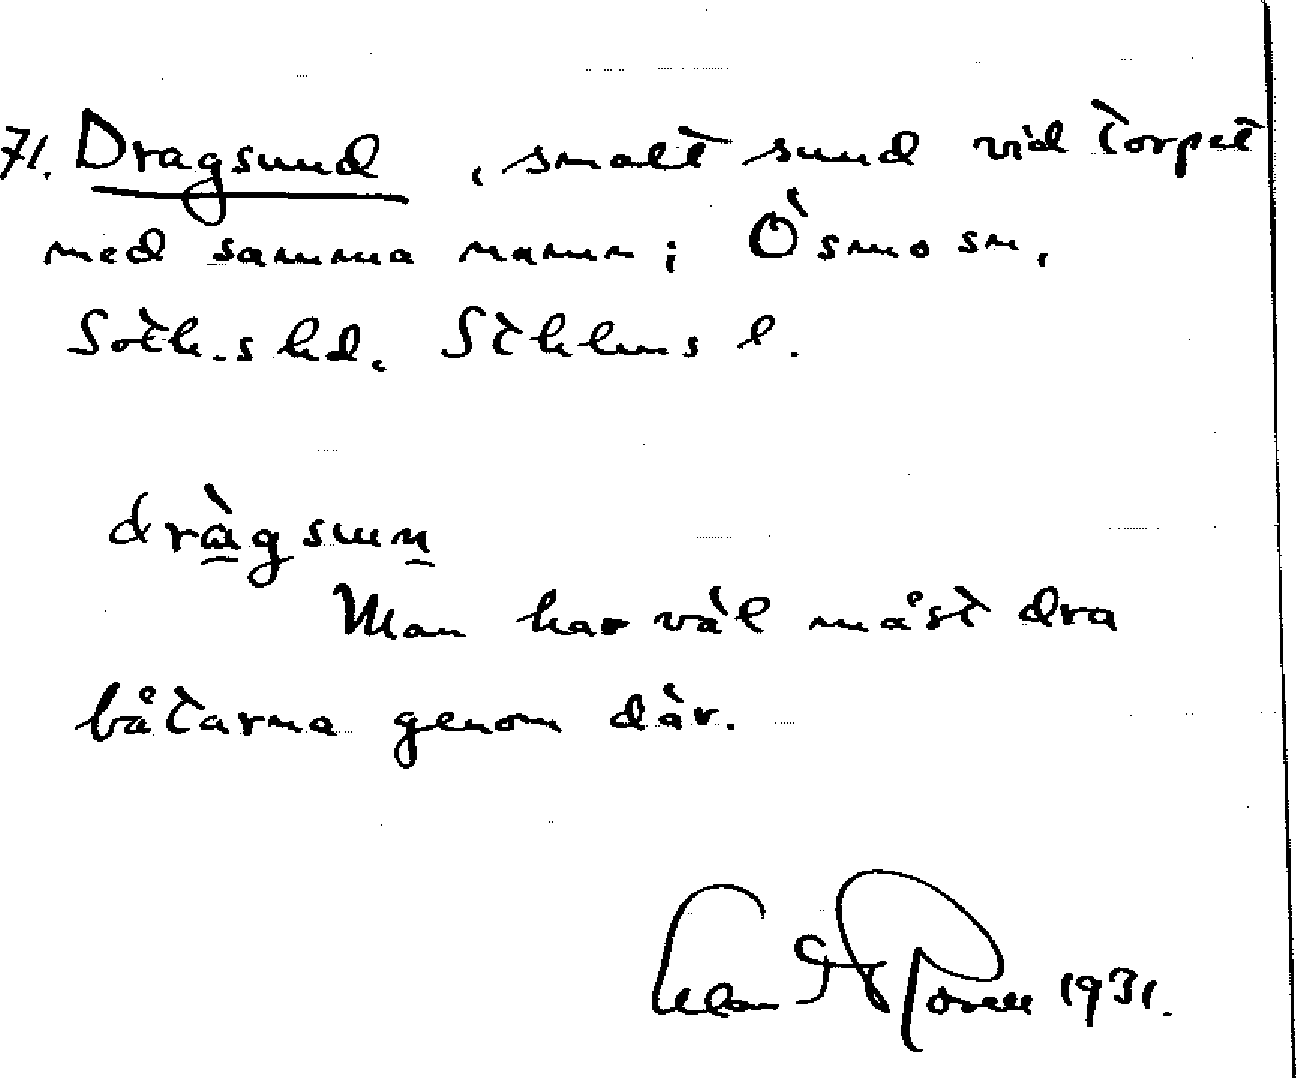 71. Dragsund, smalt sund vid torpet
med samma namn; Ösmo sn,
Soth.s hd. Sthlms l.
dràgsun
Man har väl måst dra
båtarna genom där.
1931.